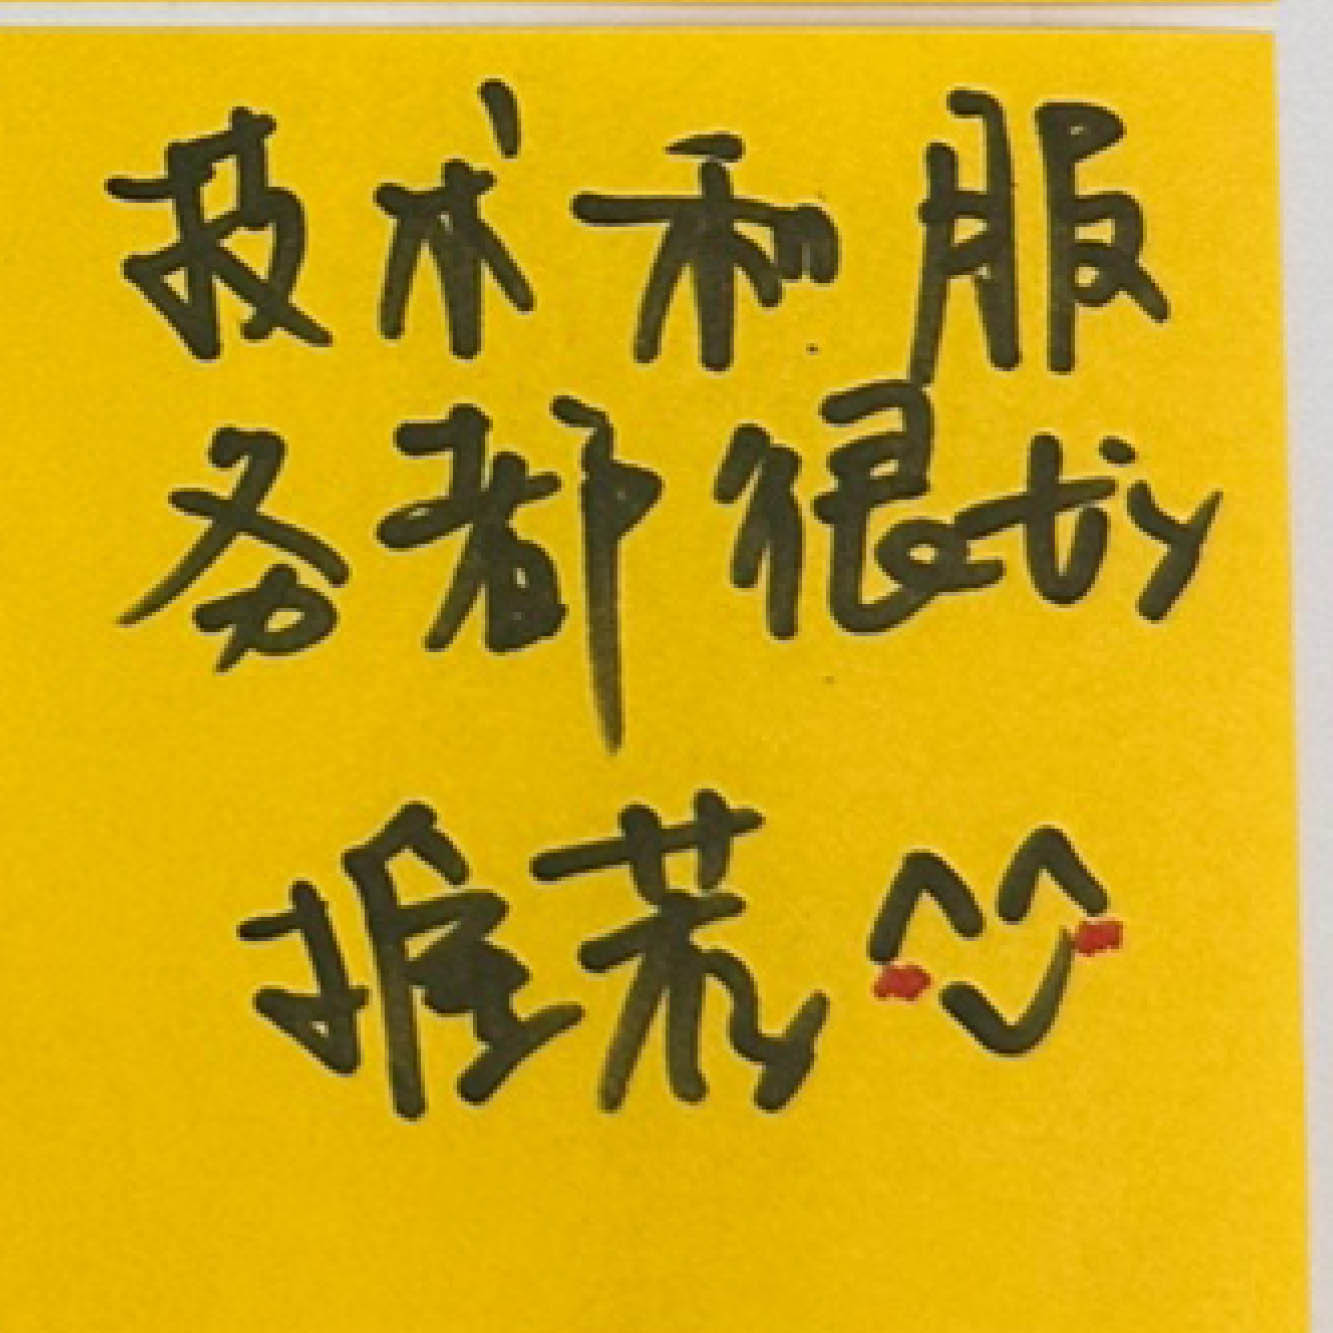 技术和服
务都很优
推荐